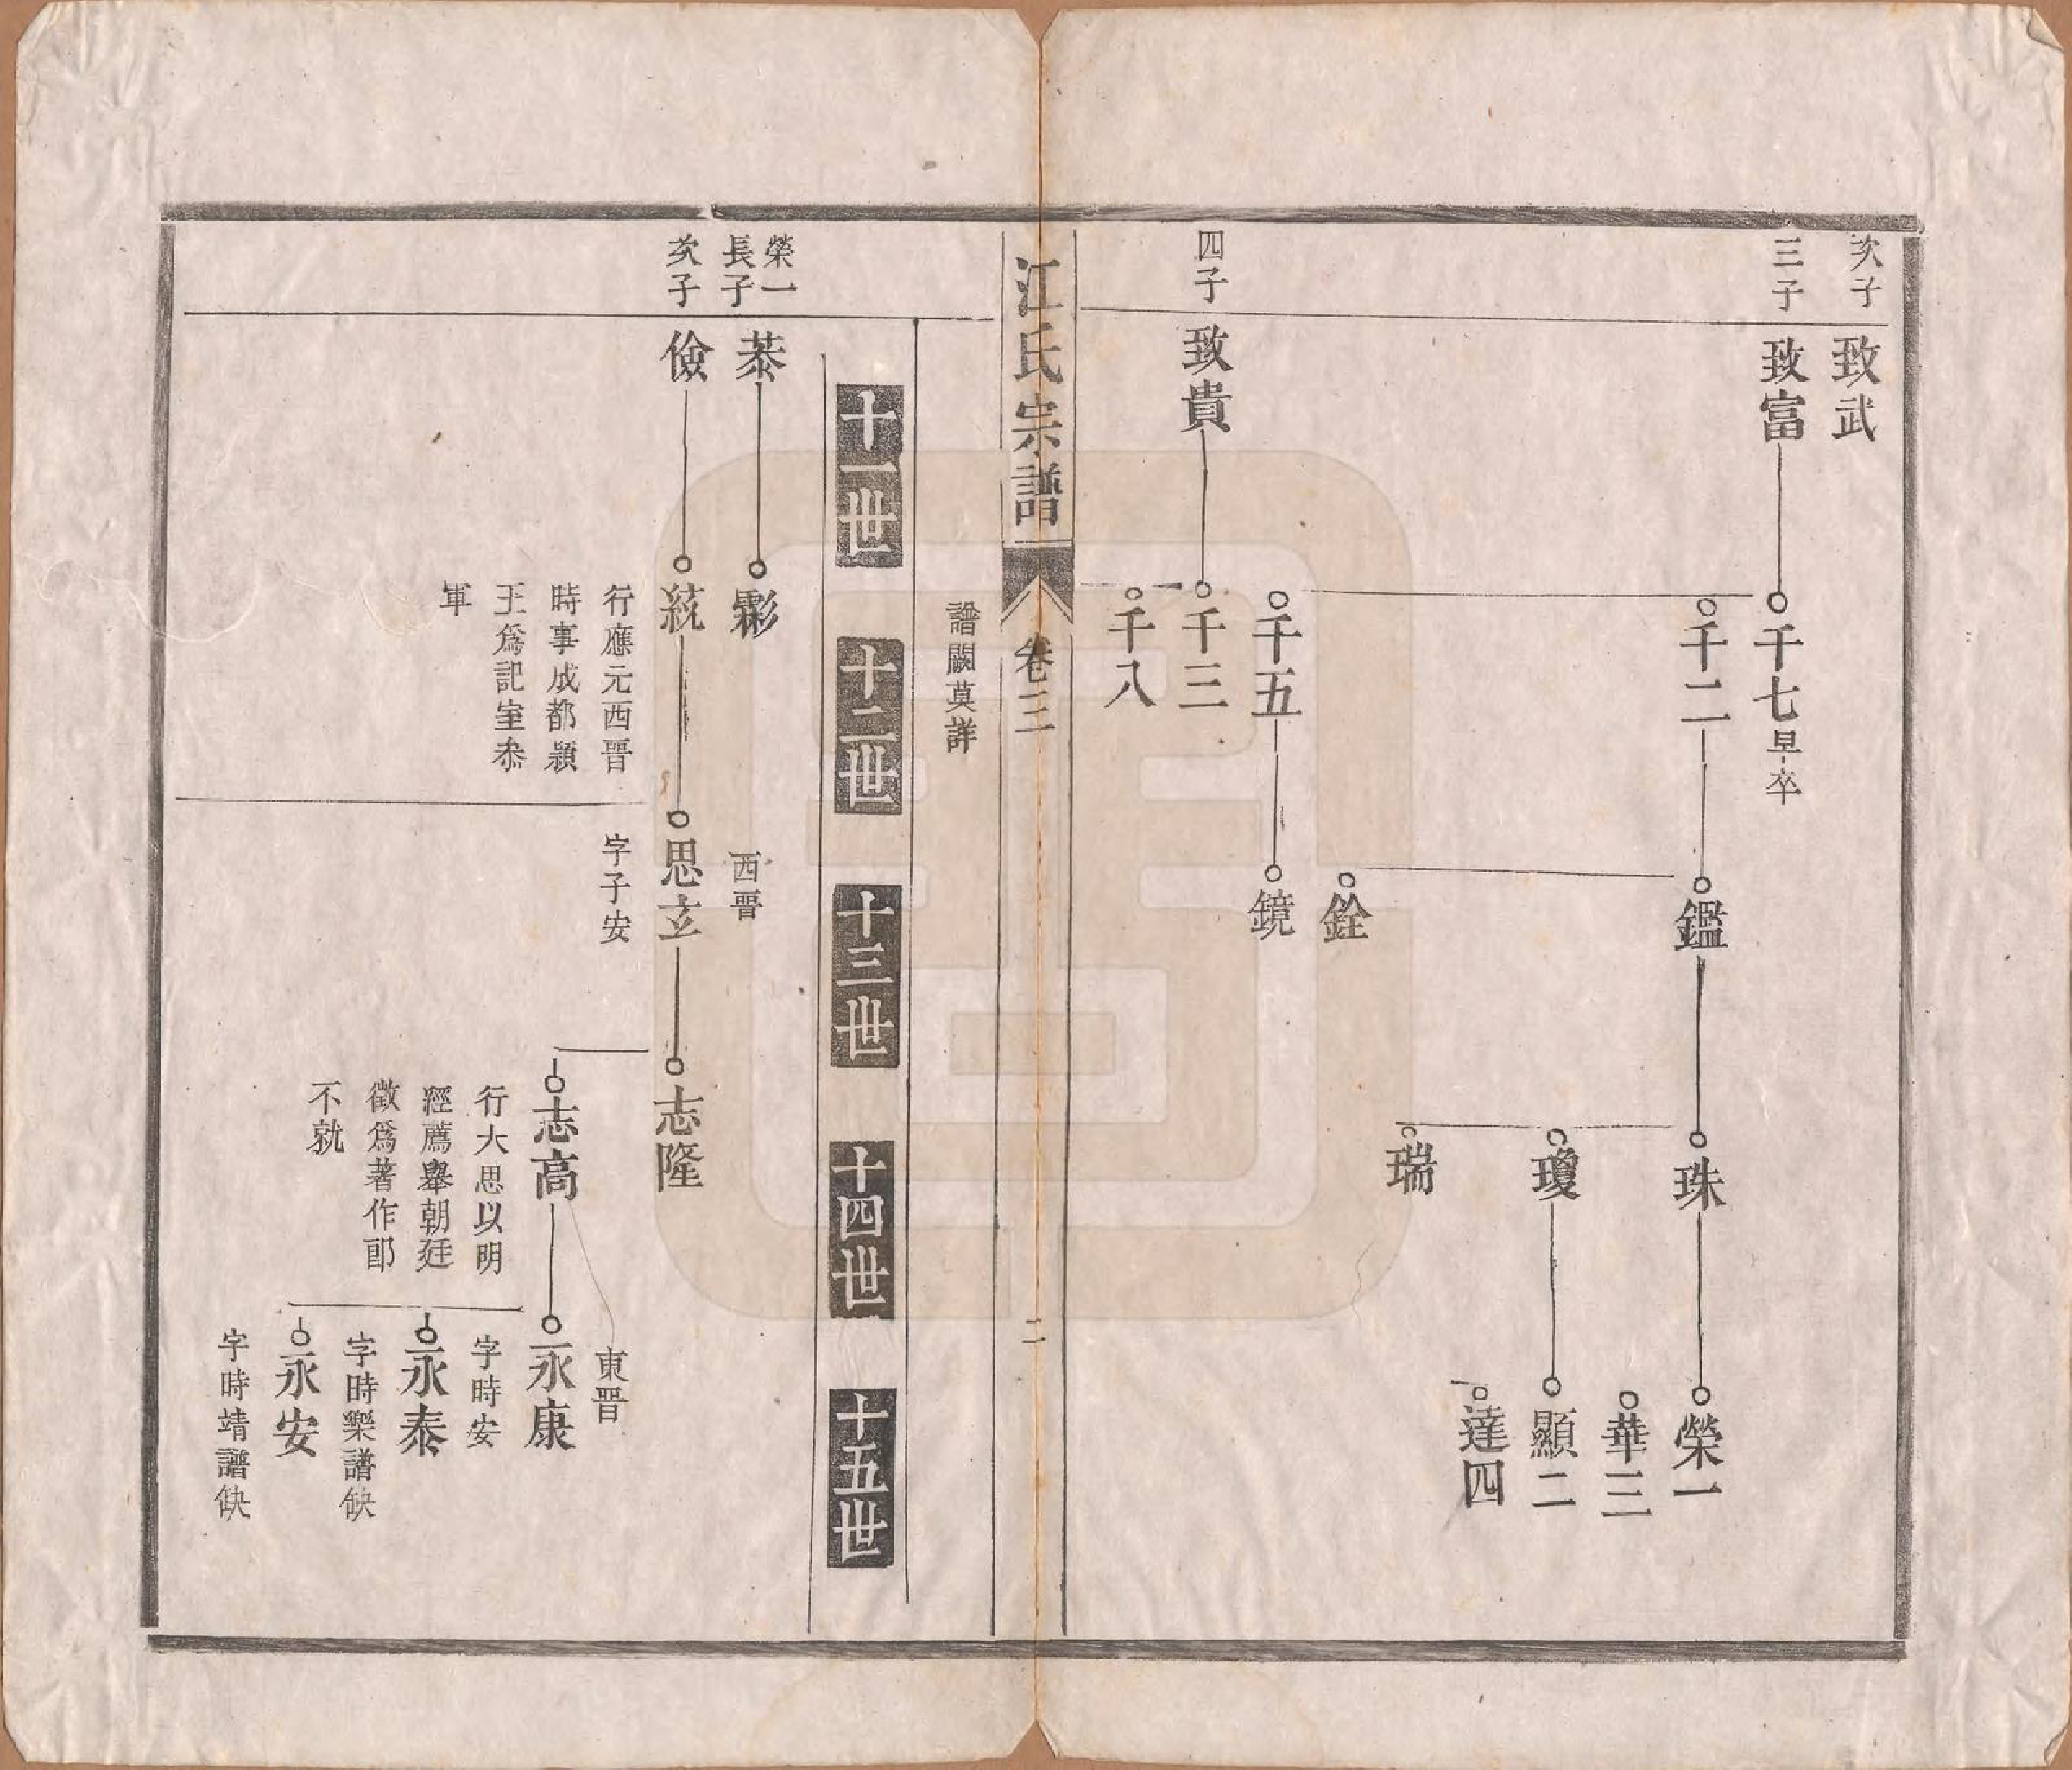 次子
致武
三子
致富
千七早卒
千二
鑑
珠
榮一
華三
瓊
顯二
達四
瑞
銓
千五
鏡
四子
致貴
千三
千八
譜闕莫詳
江氏宗譜
卷三
二
十一世
十二世
十三世
十四世
十五世
榮一
長子
恭
霖
西晉
次子
儉
統
行應元西晉
時事成都潁
王爲記室叅
軍
思立
字子安
志隆
志高
行大思以明
經薦舉朝廷
徵爲著作郎
不就
東晉
永康
字時安
永泰
字時樂譜缺
永安
字時靖譜缺